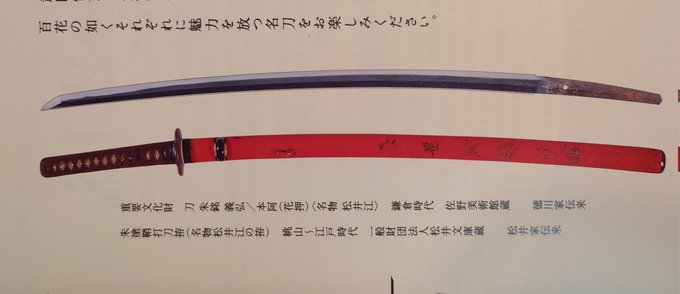 百花の如くそれぞれに魅力を放つ名刀をお楽しみください。
重要文化財 刀 朱銘 義弘／本阿（花押）（名物 松井江） 鎌倉時代 佐野美術館蔵 徳川家伝来
朱塗鞘打刀拵（名物松井江の拵） 桃山～江戸時代 一般財団法人松井文庫蔵 松井家伝来